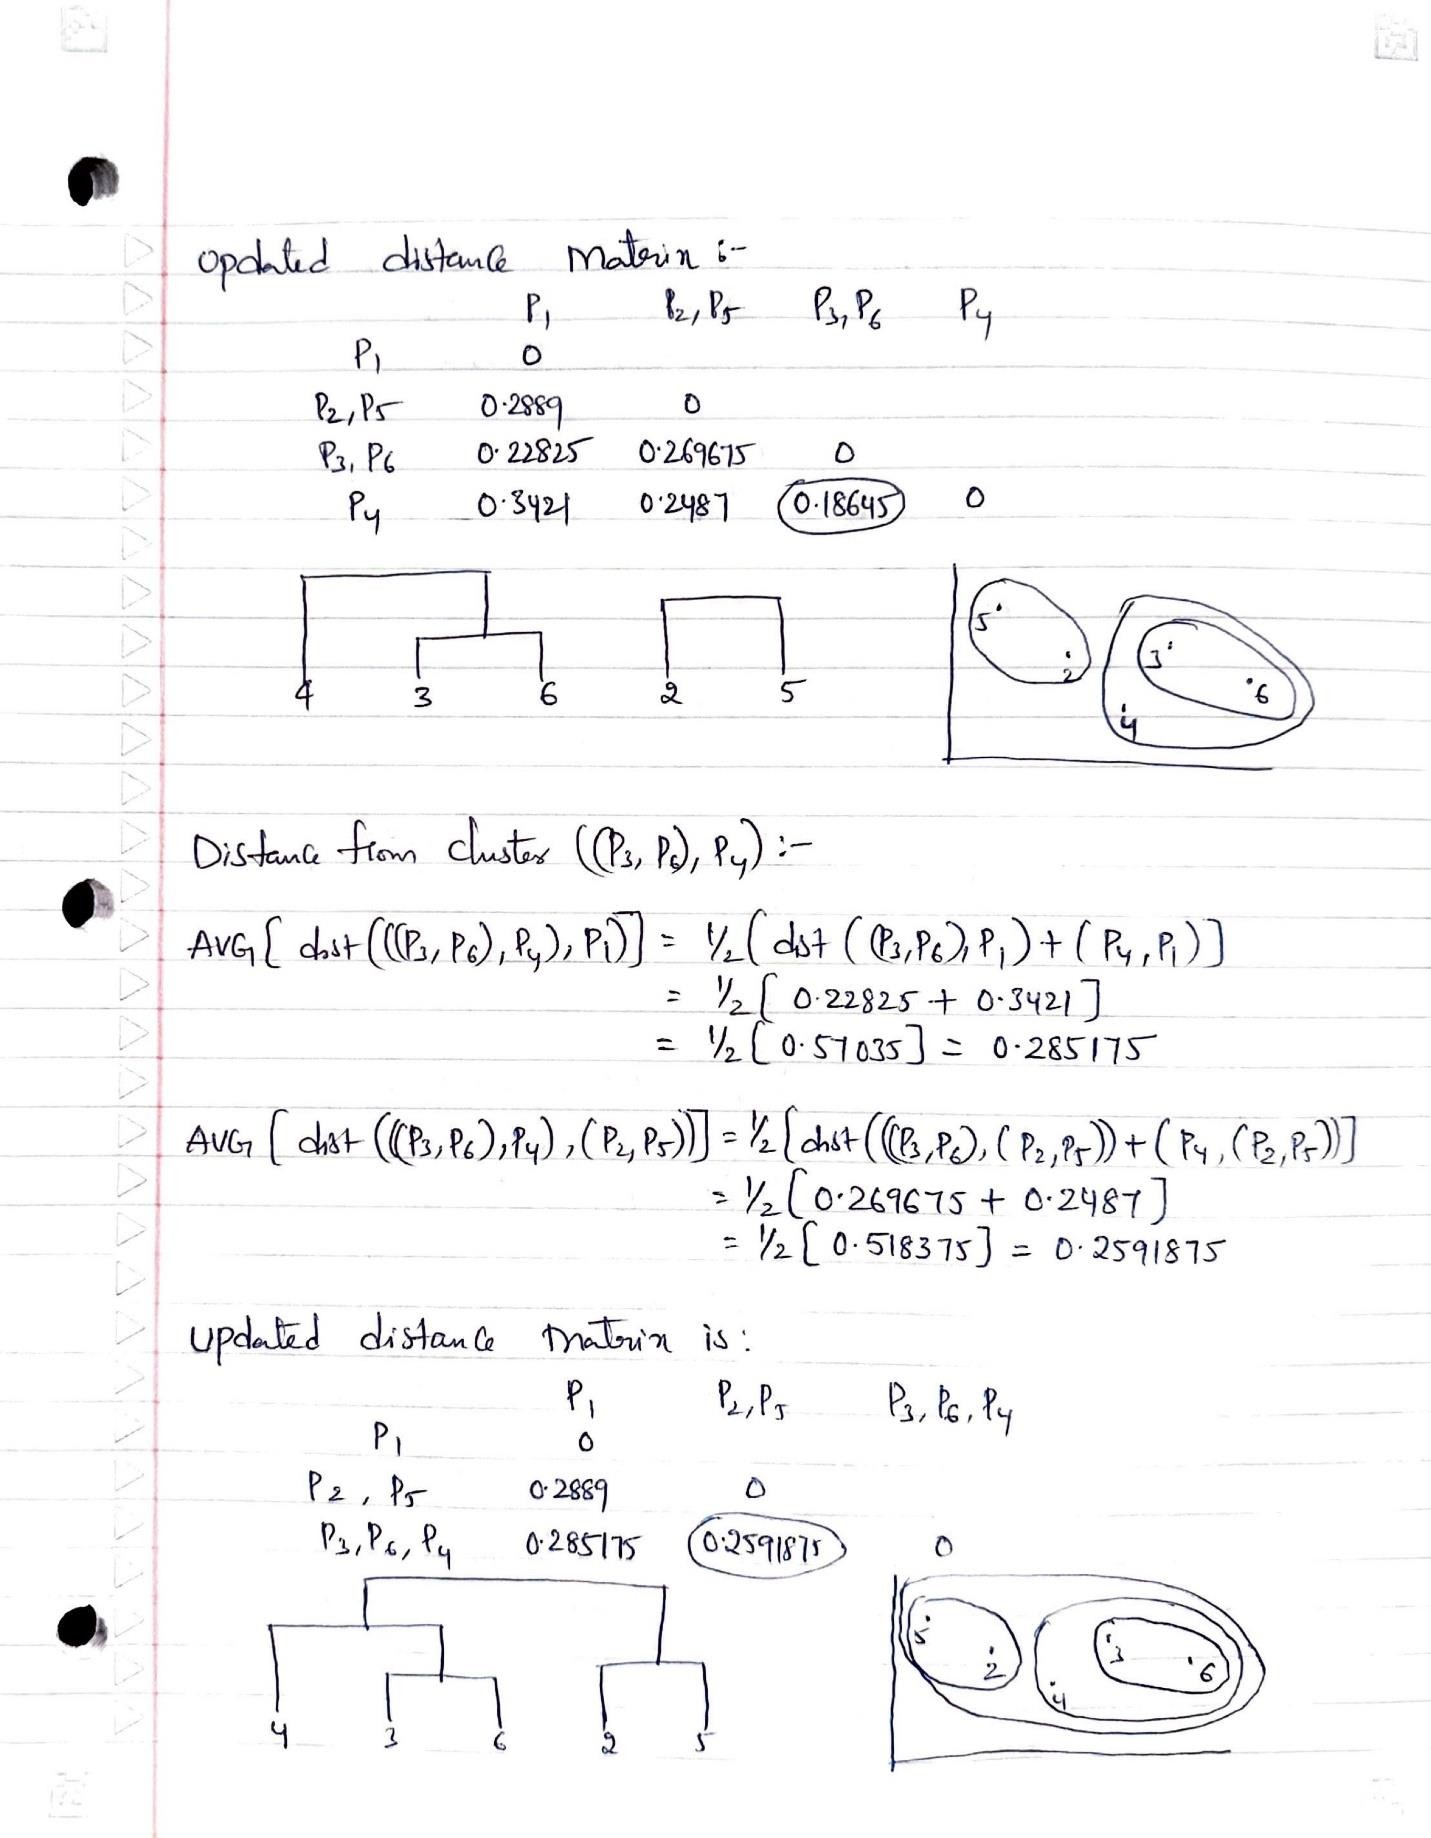 Updated distance matrix :-
P1 P2, P5 P3, P6 P4
P1 0
P2, P5 0.2889 0
P3, P6 0.22825 0.269675 0
P4 0.3421 0.2487 0.18645 0
4 3 6 2 5
5 2 3 6 4
Distance from cluster ((P3, P6), P4) :-
AVG [ dist (((P3, P6), P4), P1)] = 1/2 ( dist ( (P3, P6), P1 ) + ( P4, P1 ) ]
= 1/2 [ 0.22825 + 0.3421 ]
= 1/2 [ 0.57035 ] = 0.285175
AVG [ dist (((P3, P6), P4), (P2, P5))] = 1/2 [ dist (((P3, P6), (P2, P5)) + ( P4, (P2, P5))]
= 1/2 [ 0.269675 + 0.2487 ]
= 1/2 [ 0.518375 ] = 0.2591875
Updated distance matrix is :
P1 P2, P5 P3, P6, P4
P1 0
P2, P5 0.2889 0
P3, P6, P4 0.285175 0.2591875 0
4 3 6 2 5
5 2 3 6 4